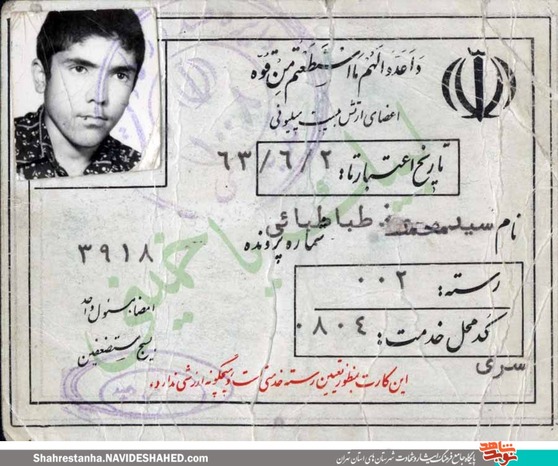 وَاَعِدّوا لَهُم مَا اسْتَطَعْتُم مِنْ قُوّه
اعضای ارتش بیست میلیونی
تاریخ اعتبار تا: ۶۳/۶/۲
نام سید محمد طباطبائی
شماره پرونده ۳۹۱۸
رسته: ۰۰۲
کد محل خدمت: ۰۸۰٤
سری
امضا مسئول واحد
بسیج مستضعفین
لبیک یا خمینی
این کارت بمنظور تعیین رسته خدمتی است و هیچگونه ارزشی ندارد.
Shahrestanha.NAVIDESHAHED.com
نوید شاهد
پایگاه جامع فرهنگ ایثار و شهادت شهرستان های استان تهران